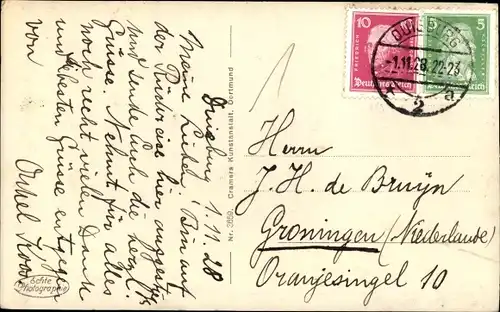 Duisburg 1.11.28
Meine Lieben! Bin auf
der Rückreise hier angest.
und sende Euch die herzl.
Grüsse. Nehmt für alles
noch recht vielen Dank
und besten Grüsse entgegen
von Onkel Koos
Echte
Photographie
Nr. 3659. Cramers Kunstanstalt, Dortmund
10
FRIEDRICH
Deutsches Reich
5
DUISBURG
-1.11.28.22-23
2 a
Herrn
J. H. de Bruÿn
Groningen (Niederlande)
Oranjesingel 10